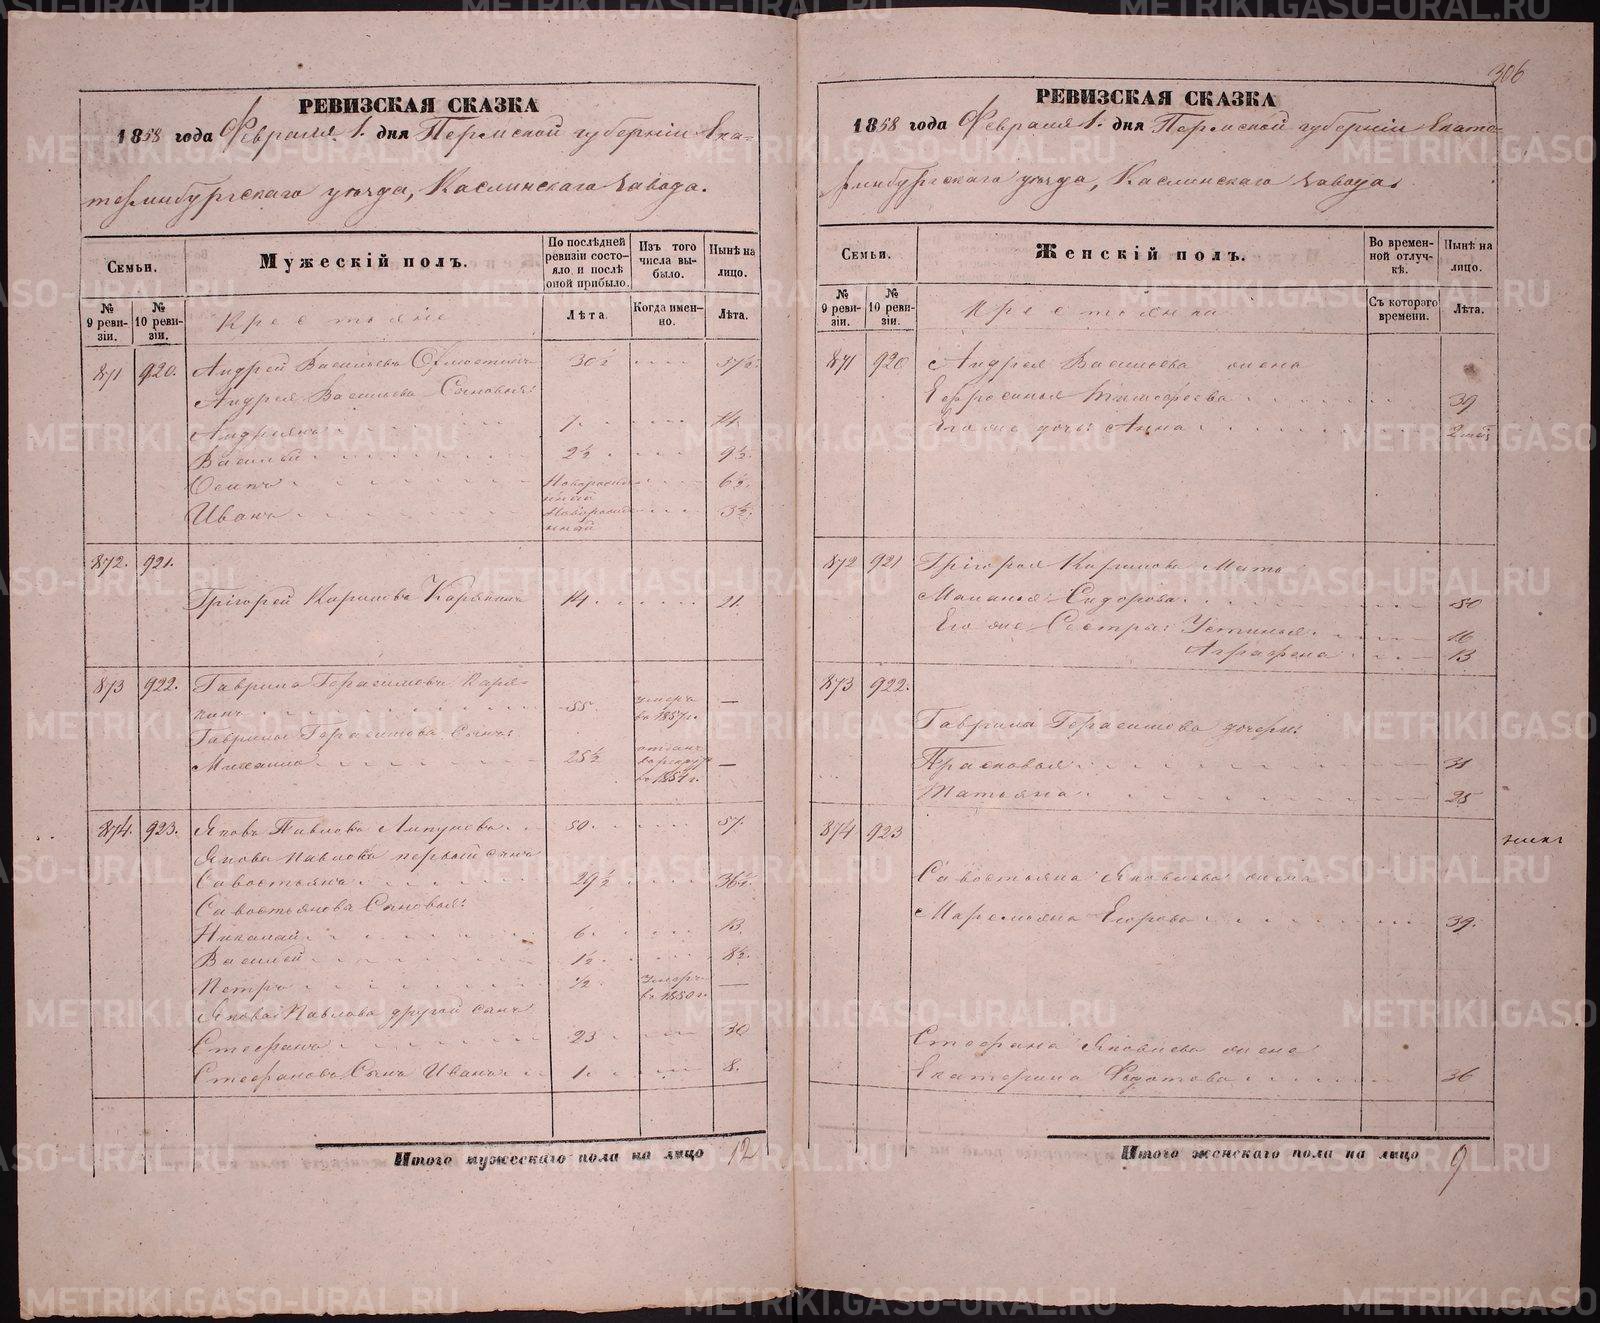 РЕВИЗСКАЯ СКАЗКА
1858 года Февраля 1. дня Пермской губерніи Ека-
теринбургскаго уѣзда, Каслинскаго завода.
Семьи.
Мужескій полъ.
По послѣдней ревизіи состояло и послѣ оной прибыло.
Изъ того числа выбыло.
Нынѣ на лицо.
№ 9 ревизіи.
№ 10 ревизіи.
Крестьяне
Лѣта.
Когда именно.
Лѣта.
871 920. Андрей Васильевъ 30½ 37½.
Андрея Васильева Сыновья:
Андріянъ 7. 14.
Василій 2½ 9½.
Осипъ Новорожденный 6½.
Иванъ Новорожденный 3½.
872. 921.
Грігорей Карповъ Карякинъ 14. 21.
873 922. Гаврила Герасимовъ Каря-
кинъ 55. умеръ въ 1857 г. —
Гаврилы Герасимова Сынъ:
Михаило 25½ отданъ въ рекруты —
874. 923. Яковъ Павловъ 50. 57.
Якова Павлова первый сынъ
Савостьянъ 29½ 36½.
Савостьянова Сыновья:
Николай 6. 13.
Василей 1½ 8½.
Петръ ½ Умеръ въ 1850 г. —
Якова Павлова другой сынъ
Стефанъ 23 30
Стефановъ Сынъ Иванъ 1. 8.
Итого мужескаго пола на лицо 12
306
РЕВИЗСКАЯ СКАЗКА
1858 года Февраля 1. дня Пермской губерніи Екате-
ринбургскаго уѣзда, Каслинскаго завода.
Семьи.
Женскій полъ.
Во временной отлучкѣ.
Нынѣ на лицо.
№ 9 ревизіи.
№ 10 ревизіи.
Крестьянки
Съ котораго времени.
Лѣта.
871 920 Андрея Васильева жена
Ефросинья Тимофеева 39
Его же дочь Анна
872 921 Грігорья Карпова Мать
Маланья Сидорова 50
Его же Сестры: Устинья 16
Аграфена 13
873 922.
Гаврилы Герасимова дочери:
Прасковья 31
Татьяна 25
874 923
Савостьяна Яковлева жена
Маремьяна Егорова 39.
Стефана Яковлева жена
Екатерина Федотова 36
Итого женскаго пола на лицо 9
METRIKI.GASO-URAL.RU